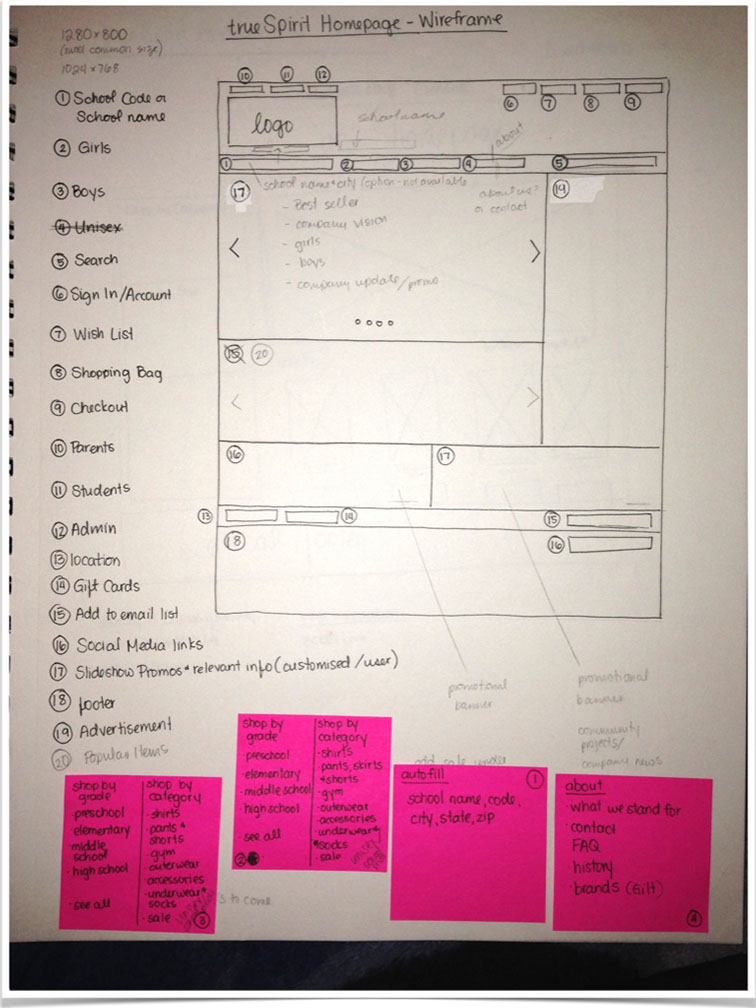 trueSpirit Homepage - Wireframe
1280 × 800
(most common size)
1024 × 768
① School Code or
School name
② Girls
③ Boys
④ Unisex
⑤ Search
⑥ Sign In/Account
⑦ Wish List
⑧ Shopping Bag
⑨ Checkout
⑩ Parents
⑪ Students
⑫ Admin
⑬ location
⑭ Gift Cards
⑮ Add to email list
⑯ Social Media links
⑰ Slideshow Promos + relevant info (customised/user)
⑱ footer
⑲ Advertisement
⑳ Popular Items
⑩ ⑪ ⑫
⑥ ⑦ ⑧ ⑨
logo
school name
about
① ② ③ ④ ⑤
⑰
school name + city (option - not available
- Best seller
- company vision
- girls
- boys
- company update/promo
about us?
or contact
⑲
⑮ ⑳
⑯ ⑰
⑬ ⑭ ⑮
⑱ ⑯
promotional
banner
promotional
banner
community
projects/
company news
add sale under
shop by
grade
· preschool
· elementary
· middle school
· high school
· see all
②
shop by
category
· shirts
· pants, skirts
+ shorts
· gym
· outerwear
· accessories
· underwear +
socks
· sale
shop by
grade
· preschool
elementary
middle
school
· high school
· see all
shop by
category
· shirts
· pants +
shorts
· gym
· outerwear
accessories
· underwear +
socks
· sale
③
to come
autofill
①
school name, code,
city, state, zip
about
· what we stand for
· contact
FAQ
· history
· brands (Gilt)
④